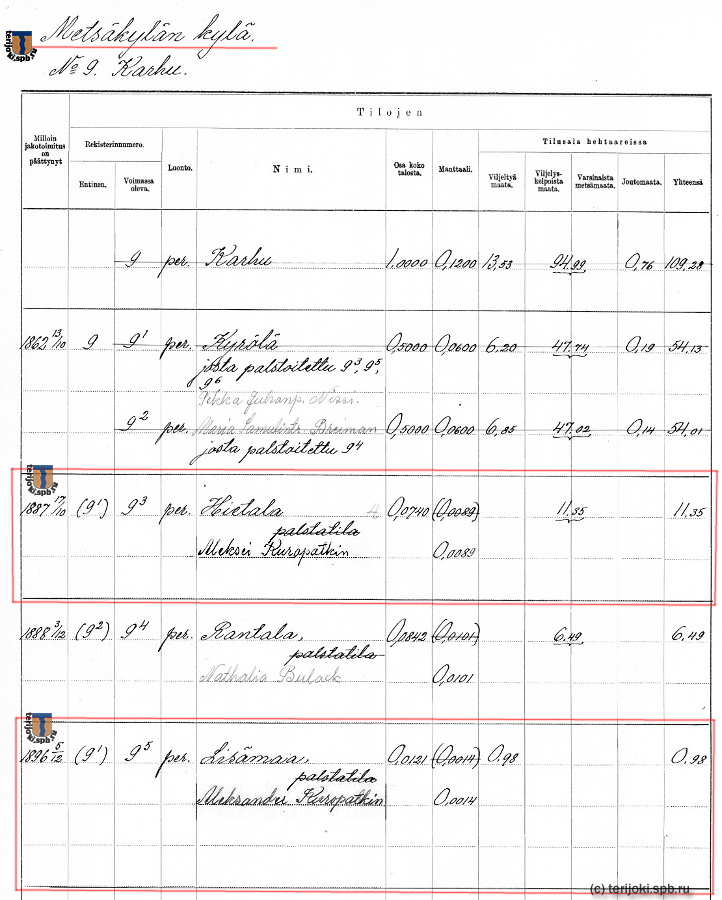 Metsäkylän kylä.
№ 9. Karhu.
terijoki.spb.ru
Tilojen
Milloin jakotoimitus on päättynyt
Rekisterinnumero.
Entinen.
Voimassa oleva.
Luonto.
Nimi.
Osa koko talosta.
Manttaali.
Tilusala hehtaareissa
Viljeltyä maata.
Viljelys-kelpoista maata.
Varsinaista metsämaata.
Joutomaata.
Yhteensä
9 per. Karhu 1.0000 0,1200 13,53 94.99 0,76 109.28
1862 13/10 9 9¹ per. Kyrölä 0,5000 0,0600 6.20 47.74 0,19 54.13
josta palstoitettu 9³, 9⁵,
9⁶
Pekka Juhanp. Nissi.
9² per. Maria 0,5000 0,0600 6,85 47.02 0,14 54,01
josta palstoitettu 9⁴
terijoki.spb.ru
1887 17/10 (9¹) 9³ per. Hietala 4 0,0740 (0,0089) 11.35 11,35
palstatila
Aleksei Kuropatkin 0,0089
1888 3/12 (9²) 9⁴ per. Rantala, 0,0842 (0,0101) 6.49 6.49
palstatila
Nathalia Bulack 0,0101
terijoki.spb.ru
1896 5/12 (9¹) 9⁵ per. Lisämaa, 0,0121 (0,0014) 0.98 0.98
palstatila
Aleksander Kuropatkin 0.0014
(c) terijoki.spb.ru